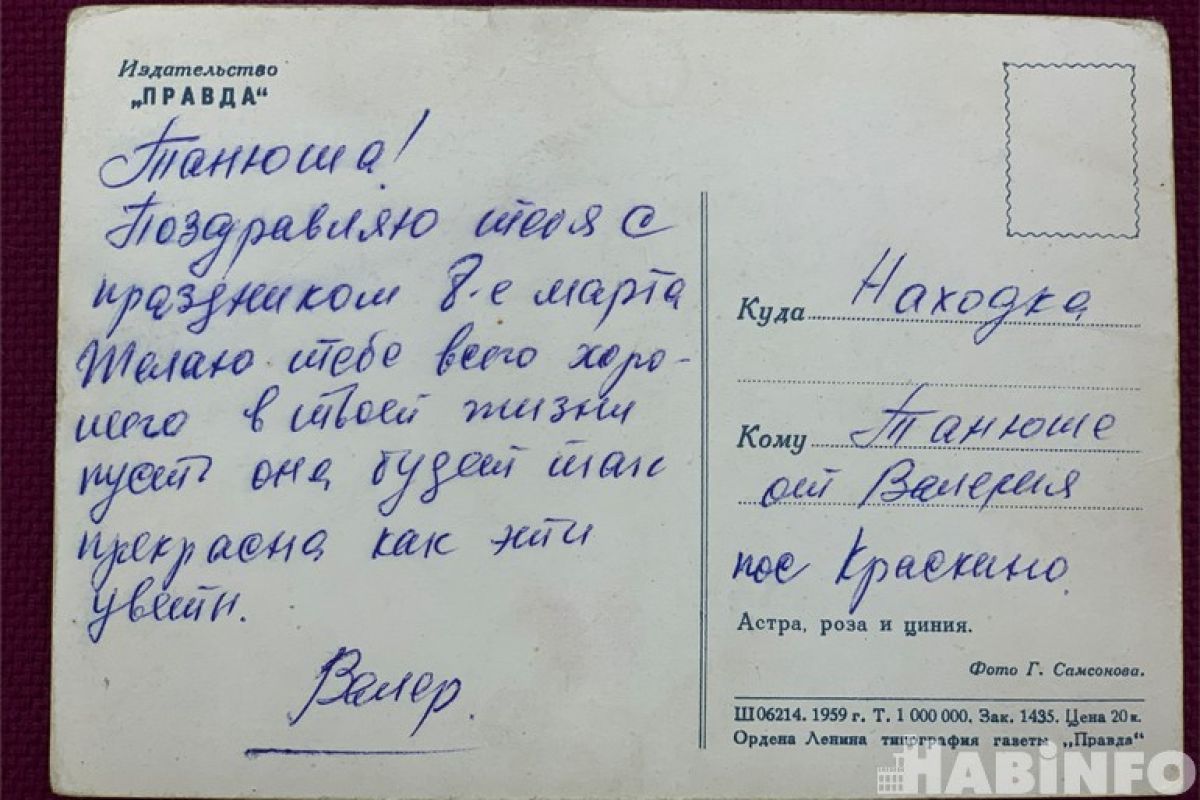 Издательство
„ПРАВДА“
Танюша!
Поздравляю тебя с
праздником 8-е марта
Желаю тебе всего хоро-
шего в твоей жизни
пусть она будет так
прекрасна как эти
цветы.
Валер.
Куда Находка
Кому Танюше
от Валерия
пос Краскино.
Астра, роза и циния.
Фото Г. Самсонова.
Ш 06214. 1959 г. Т. 1 000 000. Зак. 1435. Цена 20 к.
Ордена Ленина типография газеты „Правда“
HABINFO